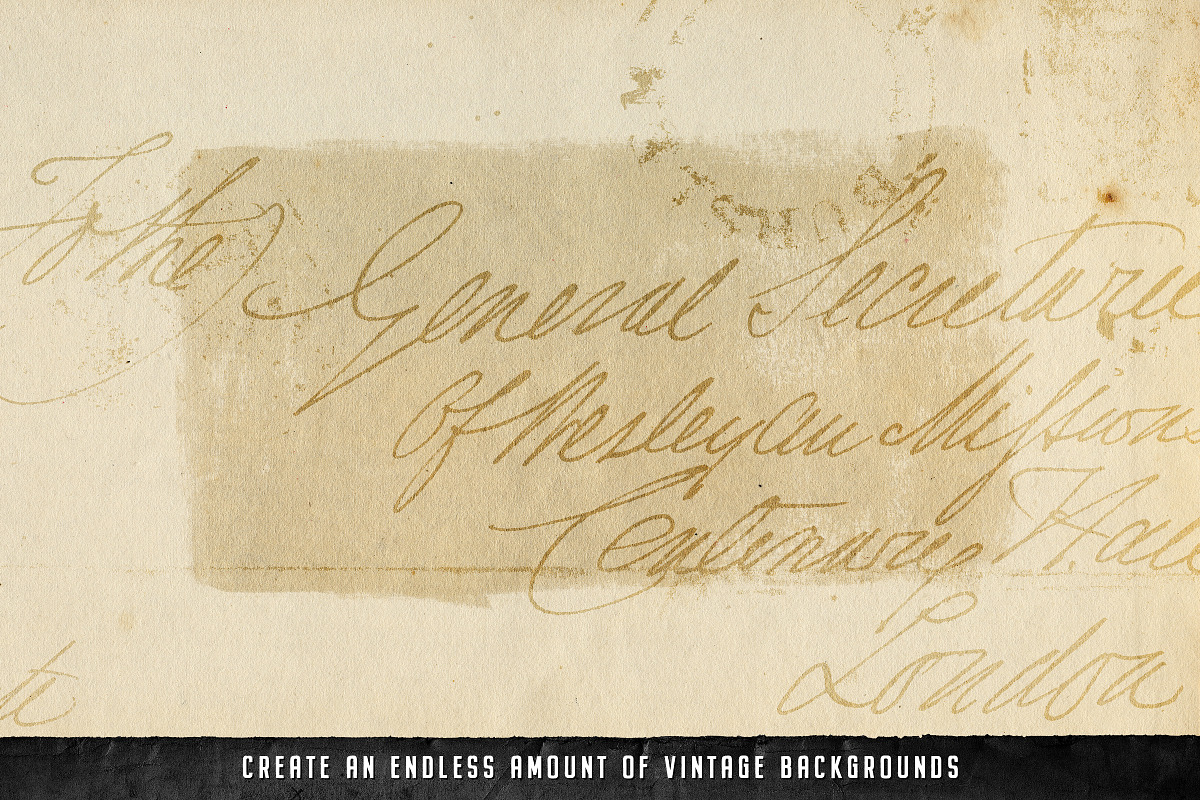 To the
General Secretarie
of Wesleyan Mission
Centenary Hall
London
te
CREATE AN ENDLESS AMOUNT OF VINTAGE BACKGROUNDS